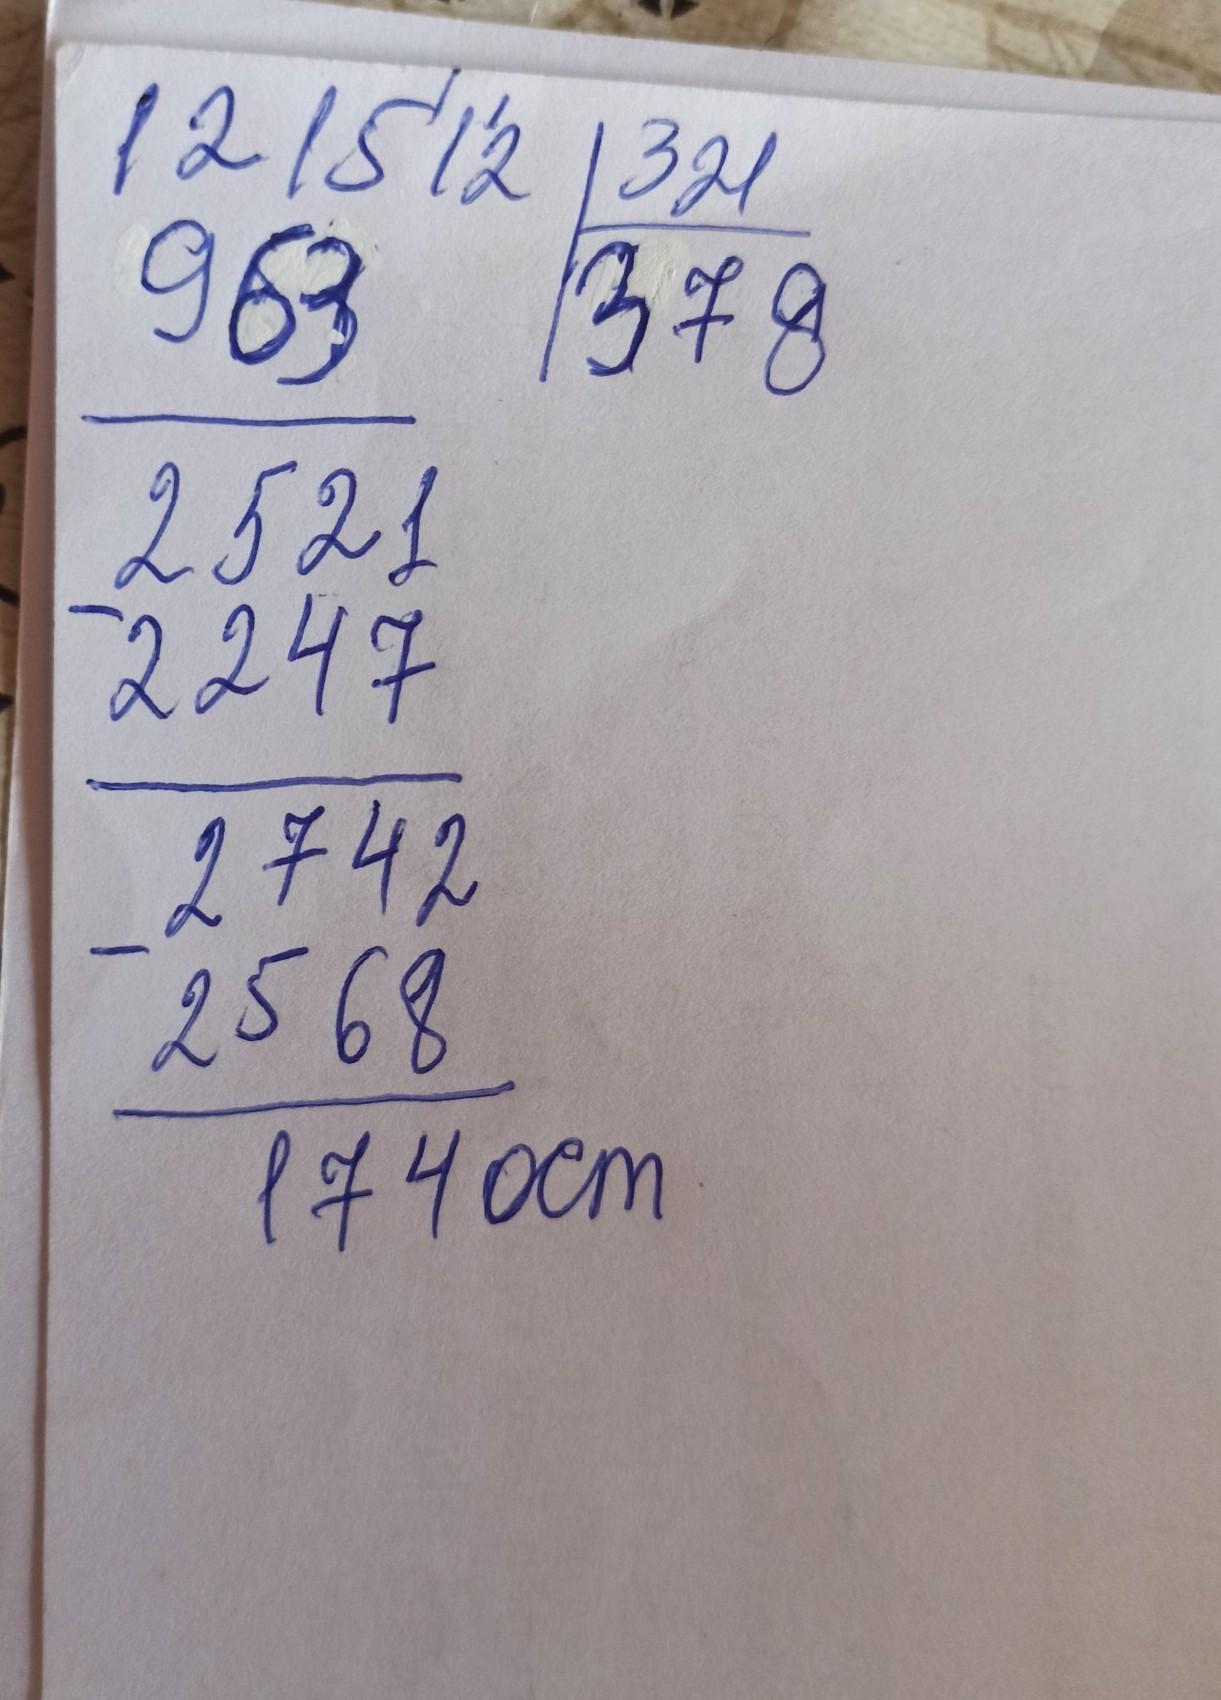 121512 321
963 378
2521
-2247
2742
-2568
174 ост